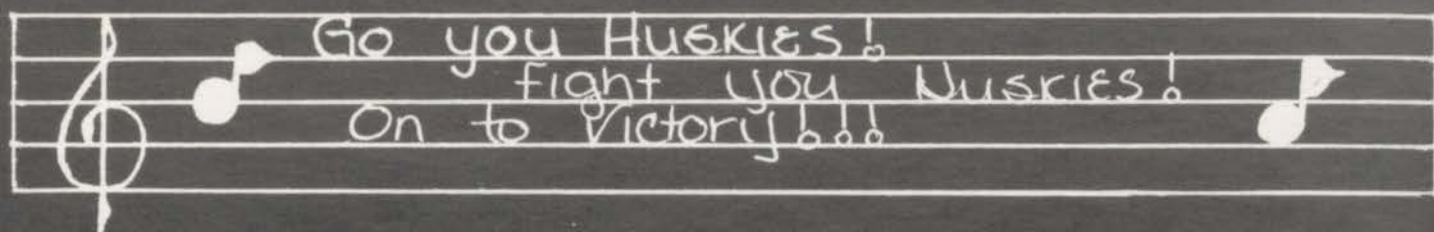 Go you Huskies!
fight you Huskies!
On to Victory!!!